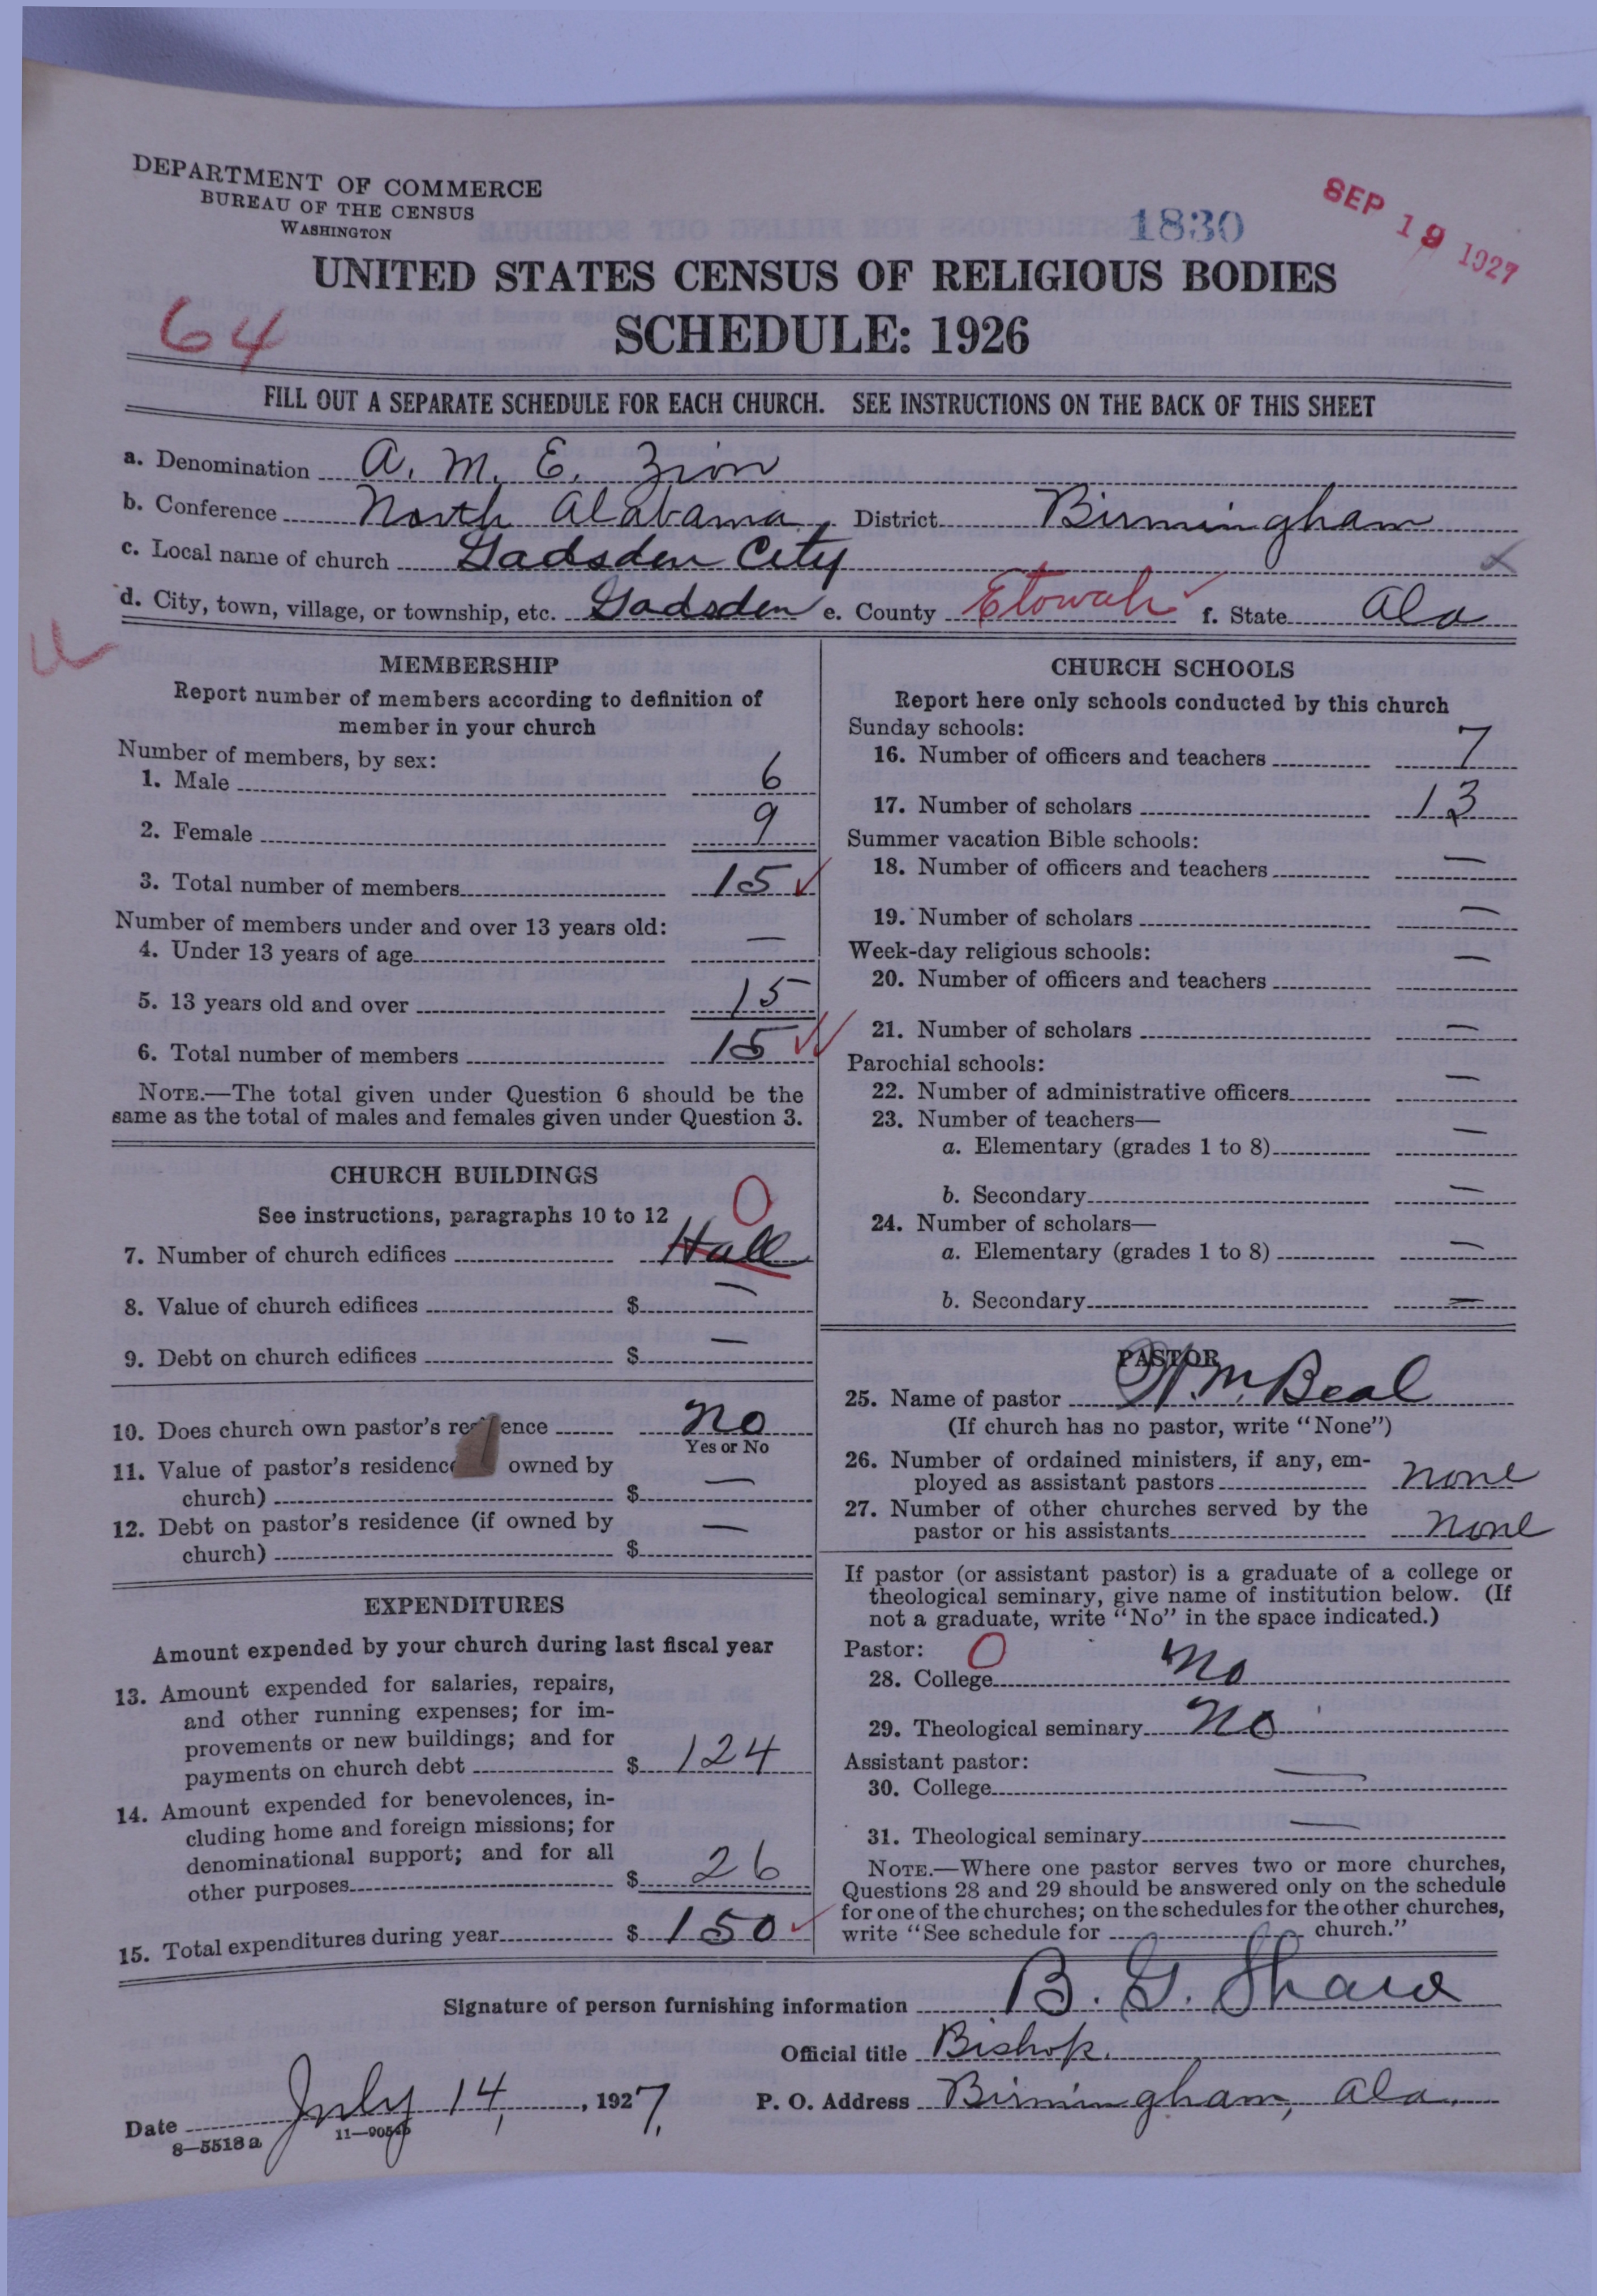 DEPARTMENT OF COMMERCE
BUREAU OF THE CENSUS
WASHINGTON
1830
SEP 19 1927
UNITED STATES CENSUS OF RELIGIOUS BODIES
64
SCHEDULE: 1926
FILL OUT A SEPARATE SCHEDULE FOR EACH CHURCH. SEE INSTRUCTIONS ON THE BACK OF THIS SHEET
a. Denomination A. M. E. Zion
b. Conference North Alabama, District Birmingham
c. Local name of church Gadsden City
d. City, town, village, or township, etc. Gadsden e. County Etowah f. State Ala
MEMBERSHIP
Report number of members according to definition of
member in your church
Number of members, by sex:
1. Male 6
2. Female 9
3. Total number of members 15
Number of members under and over 13 years old:
4. Under 13 years of age —
5. 13 years old and over 15
6. Total number of members 15
NOTE.—The total given under Question 6 should be the
same as the total of males and females given under Question 3.
CHURCH BUILDINGS
See instructions, paragraphs 10 to 12
0
7. Number of church edifices Hall
8. Value of church edifices $ —
9. Debt on church edifices $ —
10. Does church own pastor's residence no
Yes or No
11. Value of pastor's residence owned by
church) $ —
12. Debt on pastor's residence (if owned by
church) $ —
EXPENDITURES
Amount expended by your church during last fiscal year
13. Amount expended for salaries, repairs,
and other running expenses; for im-
provements or new buildings; and for
payments on church debt $ 124
14. Amount expended for benevolences, in-
cluding home and foreign missions; for
denominational support; and for all
other purposes $ 26
15. Total expenditures during year $ 150
CHURCH SCHOOLS
Report here only schools conducted by this church
Sunday schools:
16. Number of officers and teachers 7
17. Number of scholars 13
Summer vacation Bible schools:
18. Number of officers and teachers —
19. Number of scholars —
Week-day religious schools:
20. Number of officers and teachers —
21. Number of scholars —
Parochial schools:
22. Number of administrative officers —
23. Number of teachers—
a. Elementary (grades 1 to 8) —
b. Secondary —
24. Number of scholars—
a. Elementary (grades 1 to 8) —
b. Secondary —
PASTOR
25. Name of pastor W. M. Beal
(If church has no pastor, write "None")
26. Number of ordained ministers, if any, em-
ployed as assistant pastors none
27. Number of other churches served by the
pastor or his assistants none
If pastor (or assistant pastor) is a graduate of a college or
theological seminary, give name of institution below. (If
not a graduate, write "No" in the space indicated.)
Pastor: 0
28. College No
29. Theological seminary No
Assistant pastor:
30. College —
31. Theological seminary —
NOTE.—Where one pastor serves two or more churches,
Questions 28 and 29 should be answered only on the schedule
for one of the churches; on the schedules for the other churches,
write "See schedule for church."
Signature of person furnishing information B. G. Shaw
Official title Bishop.
Date July 14, 1927. P. O. Address Birmingham, Ala.
8—5518a